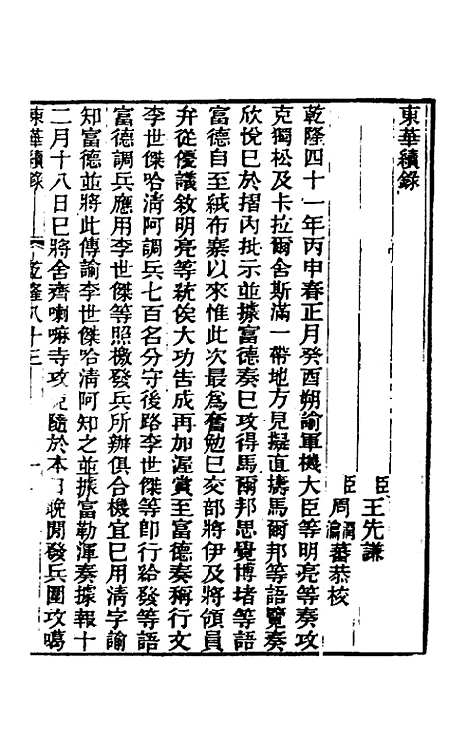 東華續錄
臣王先謙
臣周潤蕃恭校
乾隆四十一年丙申春正月癸酉朔諭軍機大臣等明亮等奏攻
克獨松及卡拉爾舍斯滿一帶地方見擬直擣馬爾邦等語覽奏
欣悅巳於摺內批示並據富德奏巳攻得馬爾邦思覺博堵等語
富德自至絨布寨以來惟此次最為奮勉巳交部將伊及將領員
弁從優議敘明亮等統俟大功告成再加渥賞至富德奏稱行文
李世傑哈清阿調兵七百名分守後路李世傑等卽行給發等語
富德調兵應用李世傑等照檄發兵所辦俱合機宜巳用清字諭
知富德並將此傳諭李世傑哈清阿知之並據富勒渾奏據報十
二月十八日巳將舍齊喇嘛寺攻克隨於本日晚閒發兵圍攻噶
東華續錄 乾隆八十三 一